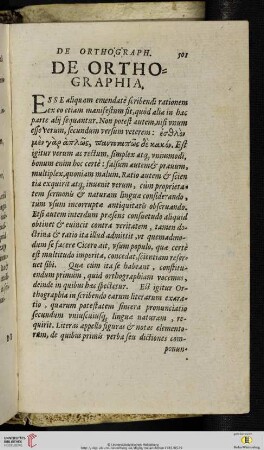 DE ORTHOGRAPH. 301
DE ORTHO-
GRAPHIA.
ESSE aliquam emendatè scribendi rationem
ex eo etiam manifestum sit, quòd alia in hac
parte alij sequantur. Non potest autem, nisi unum
esse verum, secundum versum veterem: ἐσθλοὶ
μὲν γὰρ ἁπλῶς, παντοδαπῶς δὲ κακοί. Est
igitur verum ac rectum, simplex atq, unimodi,
bonum enim hoc certè: falsum autem & prauum,
multiplex, quoniam malum. Ratio autem & scien
tia exquirit atq, inuenit verum, cum proprieta-
tem sermonis & naturam linguæ considerando,
tùm vsum incorruptæ antiquitatis obseruando.
Etsi autem interdum præsens consuetudo aliquid
obtinet & euincit contra veritatem, tamen do-
ctrina & ratio ita illud admittit, vt quemadmo-
dum se facere Cicero ait, vsum populo, quæ certè
est multitudo imperita, concedat, scientiam reser-
uet sibi. Quæ cùm ita se habeant, constitu-
endum primùm, quid orthographiam vocemus,
deinde in quibus hæc spectetur. Est igitur Or-
thographia in scribendo earum literarum exara-
tio, quarum potestatem sincera pronunciatio
secundum vniuscuiusq, linguæ naturam, re-
quirit. Literas appello figuras & notas elemento-
rum, de quibus primis verba seu dictiones com-
ponun-
© Universitätsbibliothek Heidelberg